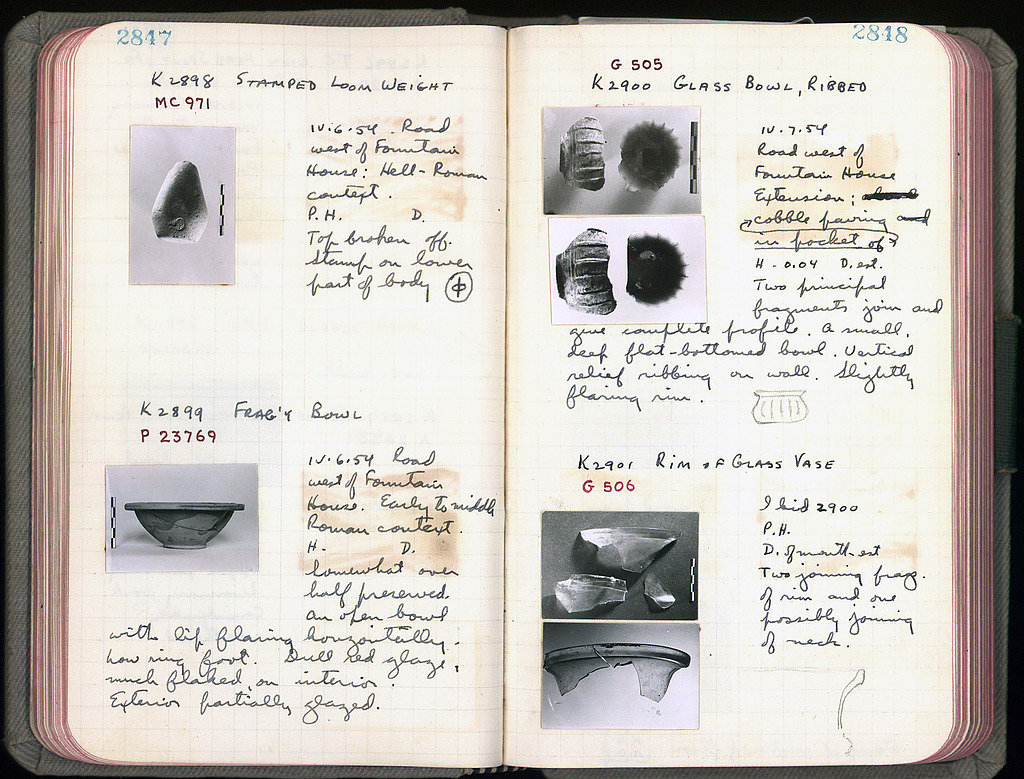 2847
K 2898 STAMPED LOOM WEIGHT
MC 971
IV.6.54. Road
west of Fountain
House: Hell-Roman
context.
P.H. D.
Top broken off.
Stamp on lower
part of body
K 2899 FRAG'Y BOWL
P 23769
IV.6.54 Road
west of Fountain
House. Early to middle
Roman context.
H. D.
Somewhat over
half preserved.
An open bowl
with lip flaring horizontally.
Low ring foot. Dull red glaze,
much flaked, on interior.
Exterior partially glazed.
2848
G 505
K2900 GLASS BOWL, RIBBED
IV.7.54
Road west of
Fountain House
Extension;
cobble paving and
in pocket of
H - 0.04 D. est.
Two principal
fragments join and
give complete profile. A small,
deep flat-bottomed bowl. Vertical
relief ribbing on wall. Slightly
flaring rim.
K2901 RIM OF GLASS VASE
G 506
Ibid 2900
P.H.
D. of mouth est
Two joining frag.
of rim and one
possibly joining
of neck.